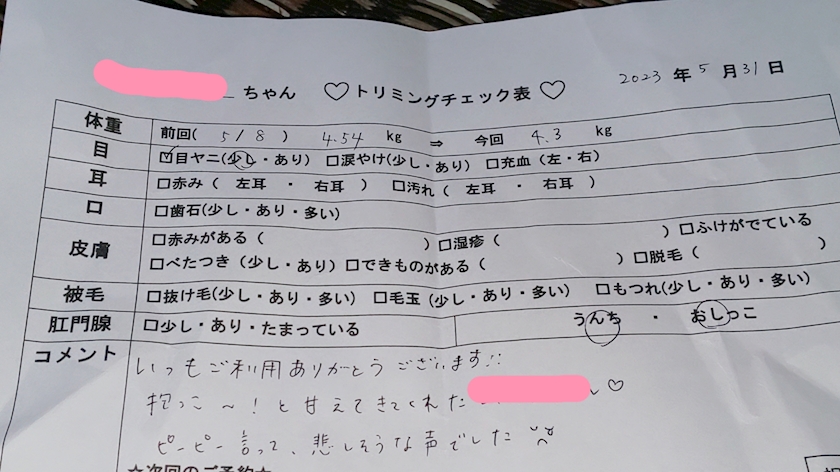 ちゃん ♡トリミングチェック表♡ 2023 年 5 月 31 日
体重 前回( 5/8 ) 4.54 kg ⇒ 今回 4.3 kg
目 ☑目ヤニ(少し・あり) □涙やけ(少し・あり) □充血(左・右)
耳 □赤み( 左耳 ・ 右耳 ) □汚れ( 左耳 ・ 右耳 )
口 □歯石(少し・あり・多い)
皮膚 □赤みがある( ) □湿疹( ) □ふけがでている
□べたつき(少し・あり) □できものがある( ) □脱毛( )
被毛 □抜け毛(少し・あり・多い) □毛玉(少し・あり・多い) □もつれ(少し・あり・多い)
肛門腺 □少し・あり・たまっている うんち ・ おしっこ
コメント
いつもご利用ありがとうございます!!
抱っこ〜!と甘えてきてくれた ♡
ピーピー言って、悲しそうな声でした
☆次回のご予約☆